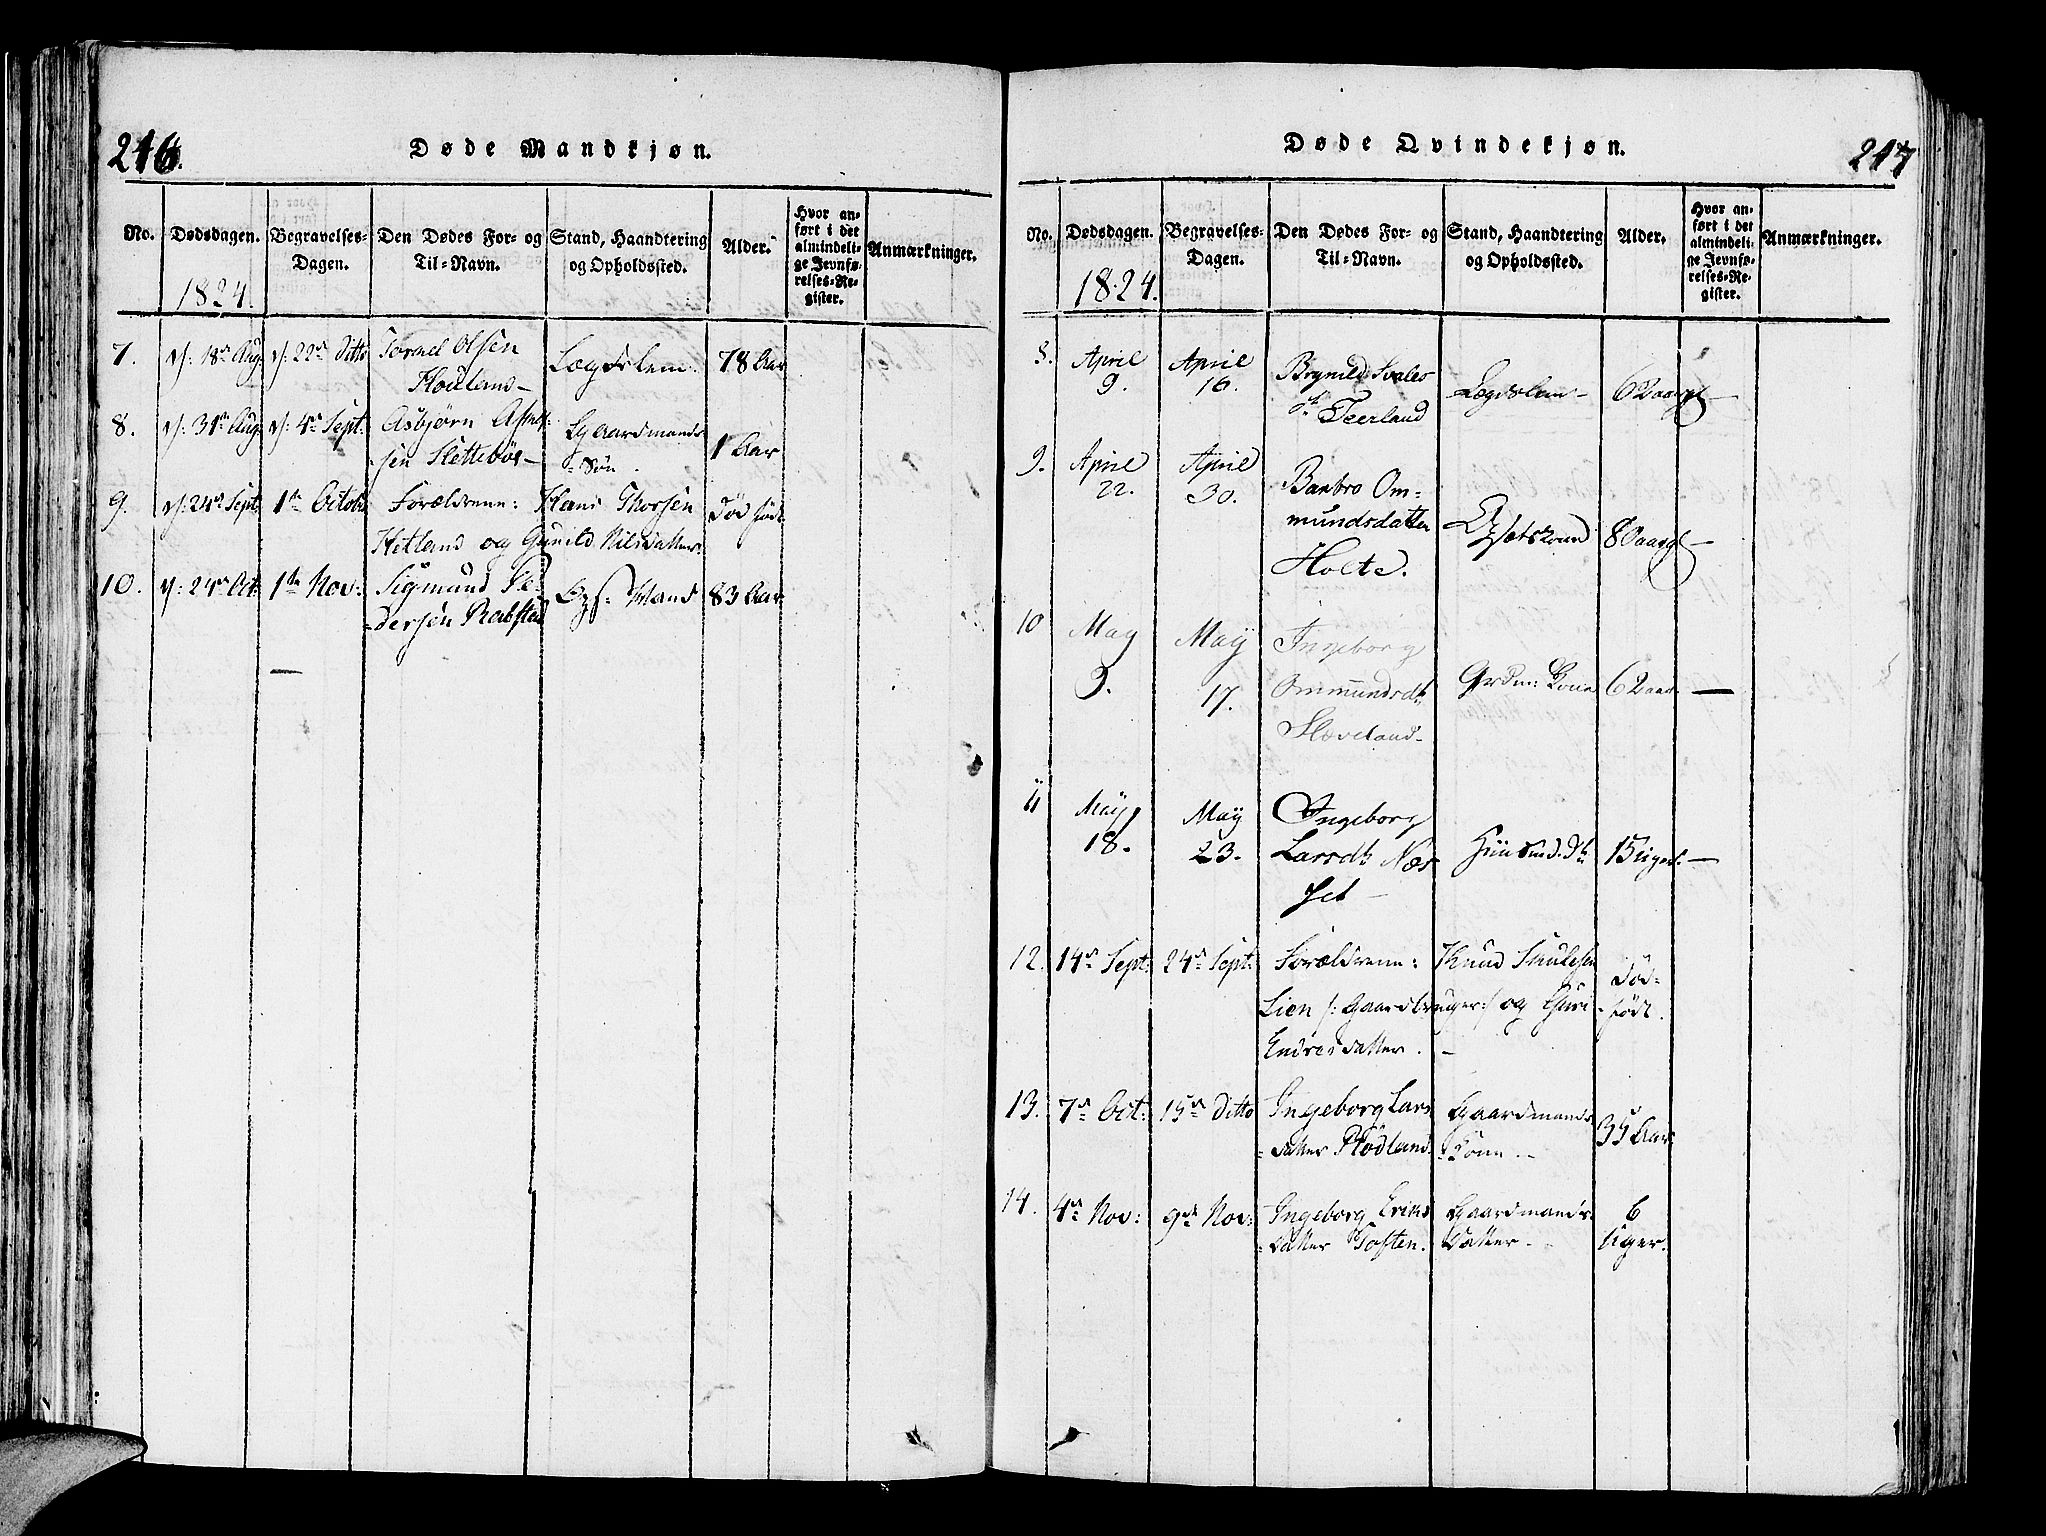 246.
Døde Mandkjøn.
No.
Dødsdagen.
Begravelses-
Dagen.
Den Dødes For- og
Til-Navn.
Stand, Haandtering
og Opholdssted.
Alder.
Hvor an-
ført i det
almindeli-
ge Jevnfø-
relses-Re-
gister.
Anmærkninger.
1824.
7. d: 18de Aug: d: 22de Ditto Tormod Olsen
Houland – Lægdslem. 78 Aar
8. d: 31te Aug: d: 4de Sept: Asbjørn
sen Slettebøe – Gaardmands
= Søn. 1 Aar
9. d: 24de Sept: 1ste Octob: Forældrene: Hans Thorsen
Hetland og Gunild Nilsdatter. Død født
10. d: 24de Oct: 1ste Nov: Sigmund Pe-
dersen Mand 83 Aar
—
247
Døde Qvindekjøn.
No.
Dødsdagen.
Begravelses-
Dagen.
Den Dødes For- og
Til-Navn.
Stand, Haandtering
og Opholdssted.
Alder.
Hvor an-
ført i det
almindeli-
ge Jevnfø-
relses-Re-
gister.
Anmærkninger.
1824.
8. April
9. April
16. Brynild
Teerland Lægdslem – 62 aar gl —
9. April
22. April
30. Barbro Om-
mundsdatter
Holte. 80 aar gl —
10 May
9. May
17. Ingeborg
Ommundsdtr
Slæveland – Grdm: Kone 62 aar —
11 May
18. May
23. Ingeborg
Larsdtr Næs
set – Huusmd. Dtr 15 Uger. —
12. 14de Sept: 24de Sept: Forældrene: Knud Knudsen
Lien /: Gaardbruger:/ og Guri
Endresdatter. – Død-
født.
13. 7de Oct: 15de Ditto Ingeborg Lars
= datter Rødland. Gaardmands
= Kone. – 35 Aar
14. 4de Nov: 9de Nov: Ingeborg Eriks
= datter Toften. Gaardmands
Datter – 6
Uger.